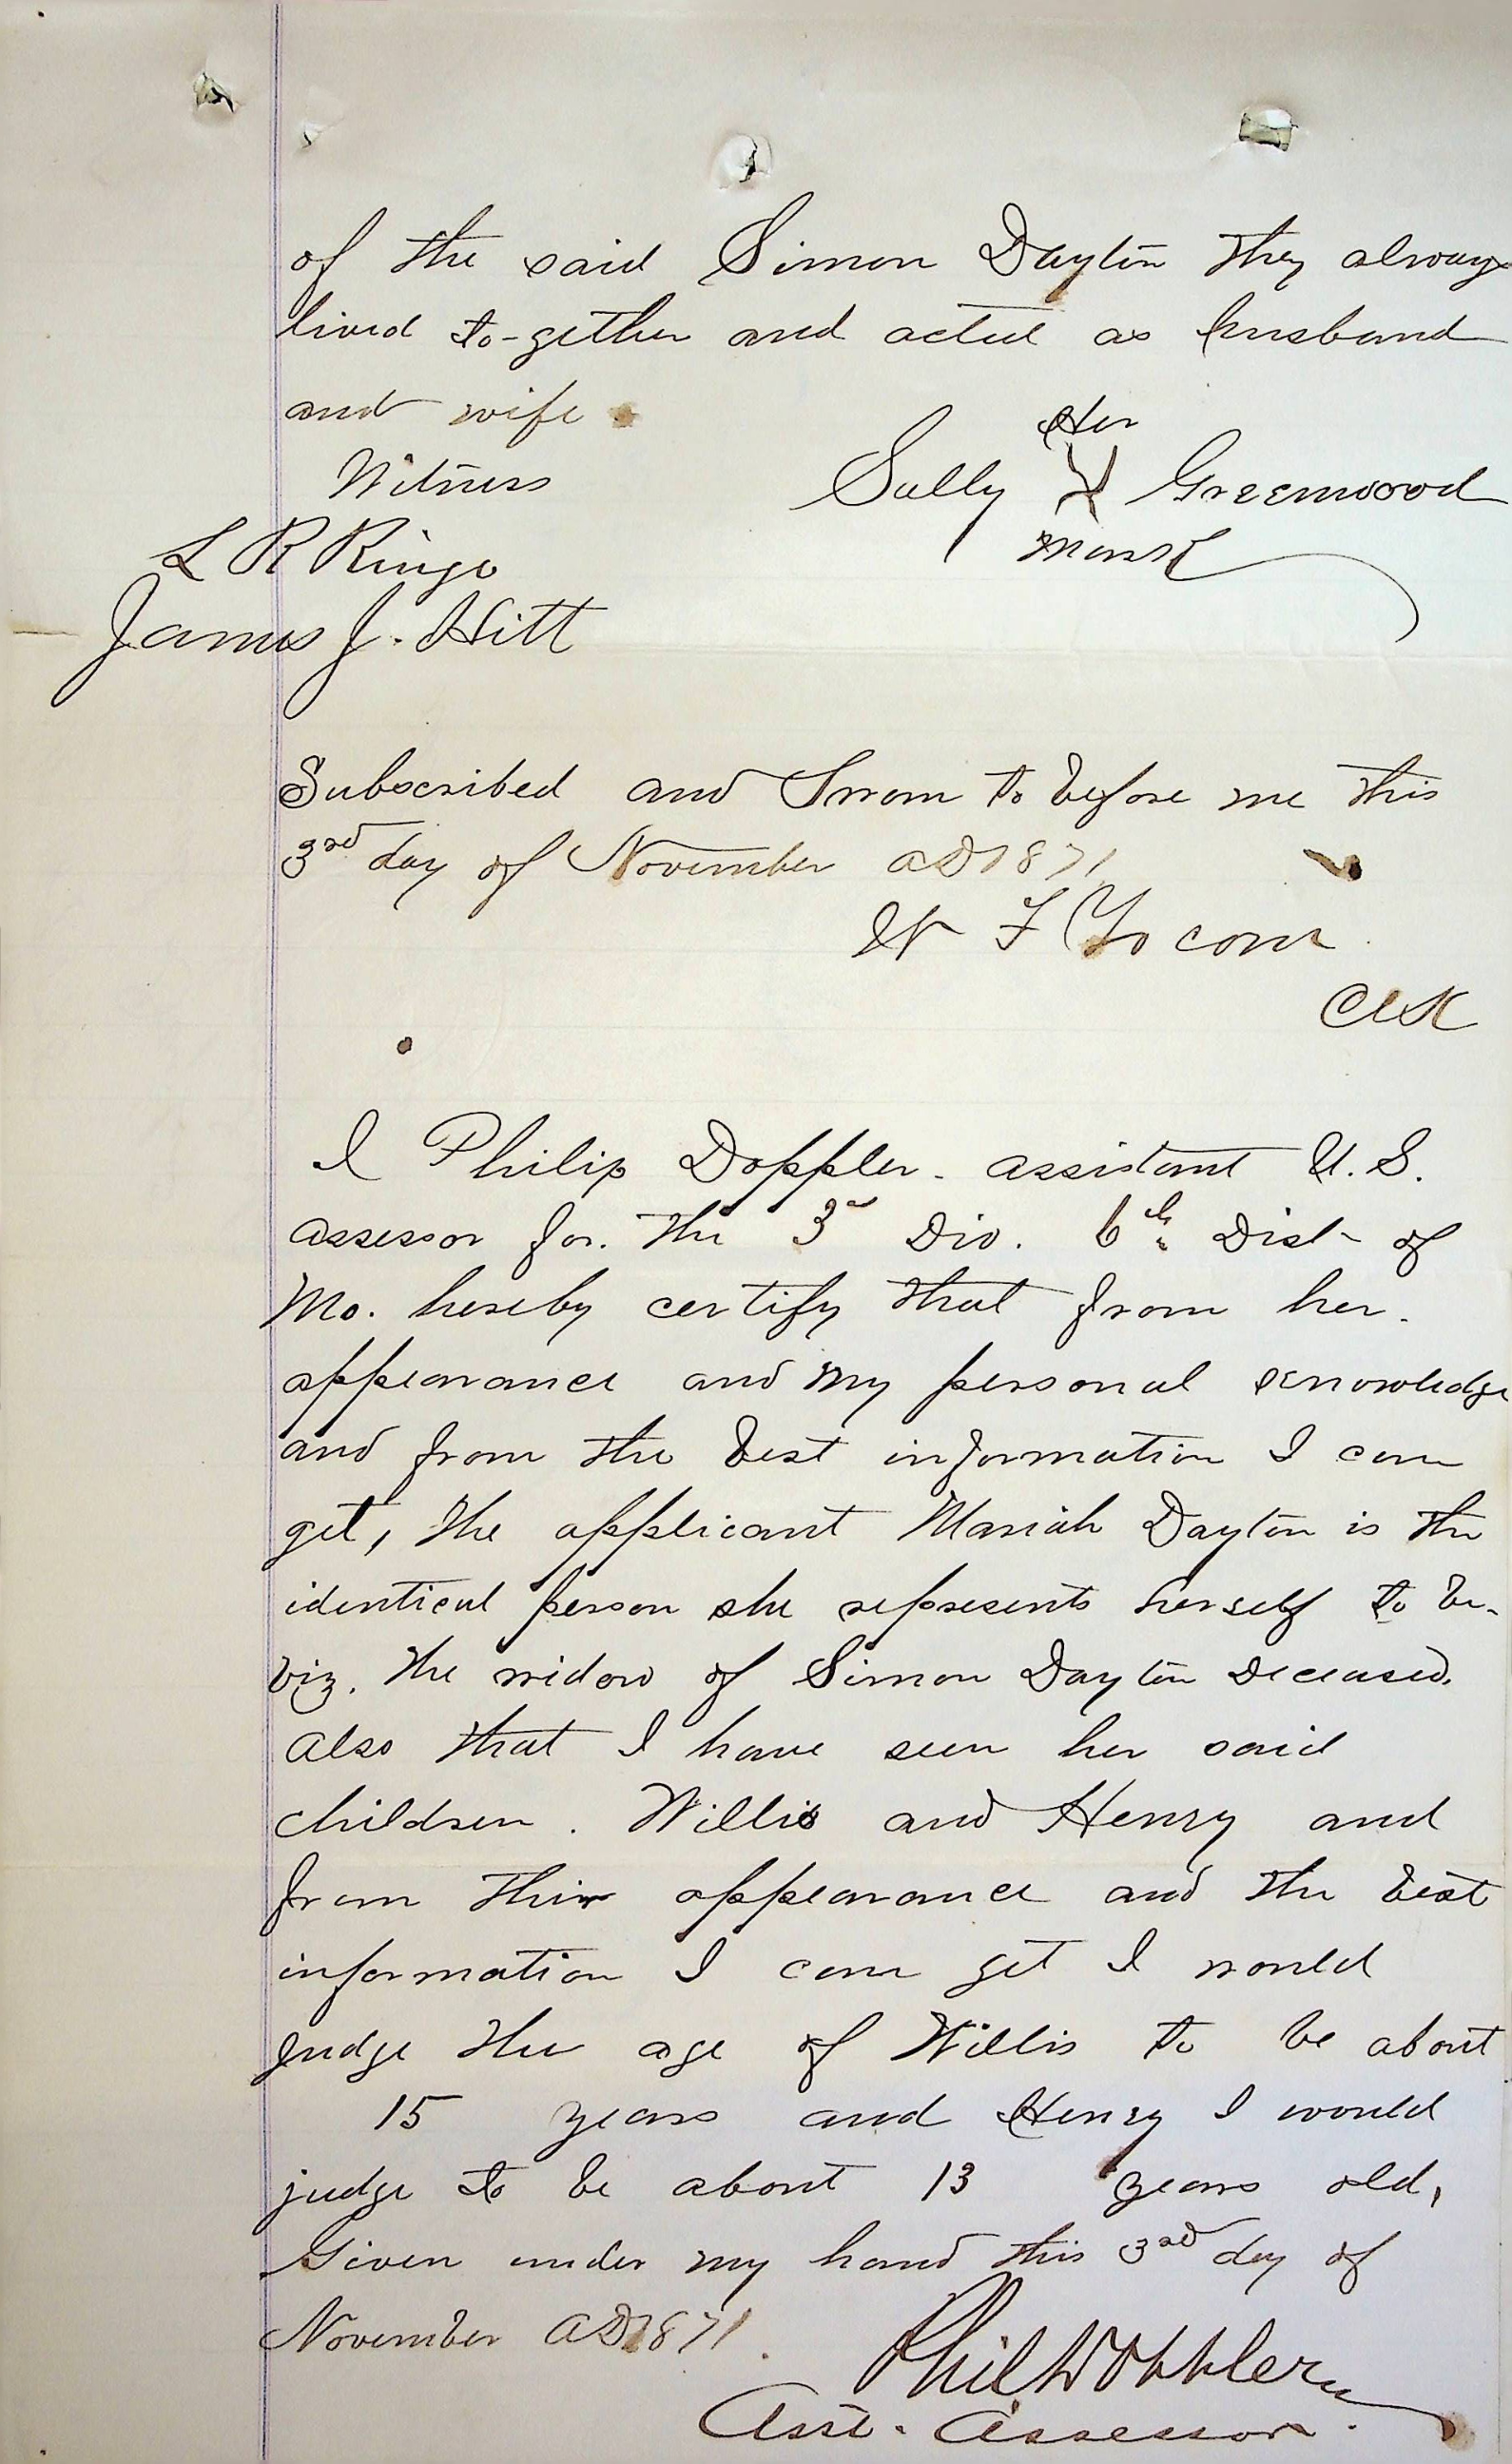 of the said Simon Dayton they always
lived to-gether and acted as husband
and wife.
Witness
Her
Sally X Greenwood
mark
L R Ringo
James J. Hitt
Subscribed and Sworn to before me this
3rd day of November AD 1871
W F Yocom
Clk
I Philip Doppler. assistant U.S.
assessor for. the 3d Div. 6th Dist- of
Mo. hereby certify that from her.
appearance and my personal knowledge
and from the best information I can
get, the applicant Mariah Dayton is the
identical person she represents herself to be.
viz. the widow of Simon Dayton deceased.
also that I have seen her said
children. Willis and Henry and
from their appearance and the best
information I can get I would
judge the age of Willis to be about
15 years and Henry I would
judge to be about 13 years old,
Given under my hand this 3rd day of
November AD 1871.
Phil Doppler
Asst. Assessor.